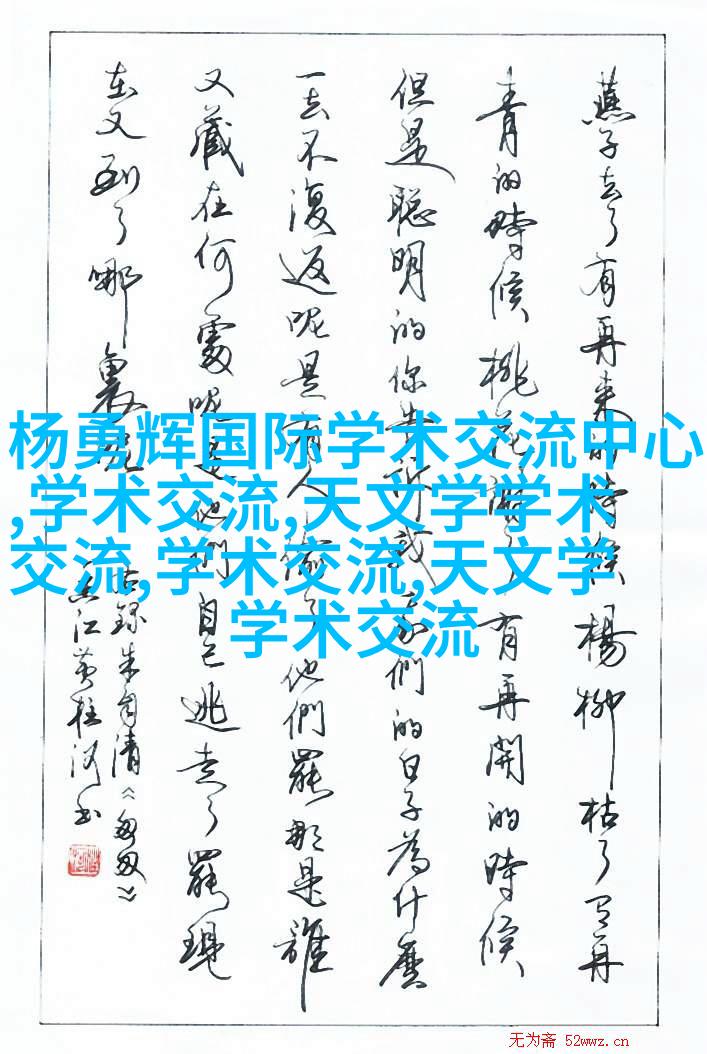 燕子去了有再来的時候楊柳枯了有再
青的時候桃花謝了有再開的時候
但是聪明的你告訴我我們的日子為什麽
一去不復返呢是有人偷了他們罷那是誰
又藏在何處呢是他們自己逃走了罷現
在又到了哪裏呢
錄朱自清《匆匆》
江黄柱河书
杨勇辉国际学术交流中心
,学术交流,天文学学术
交流,学术交流,天文学
学术交流
无为斋 52wwz.cn